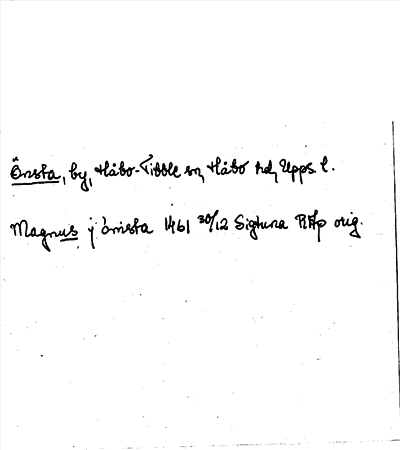 Önsta, by, Håbo-Tibble sn, Håbo hd, Upps. l.
Magnus j ønista 1461 30/12 Sigtuna RAp orig.